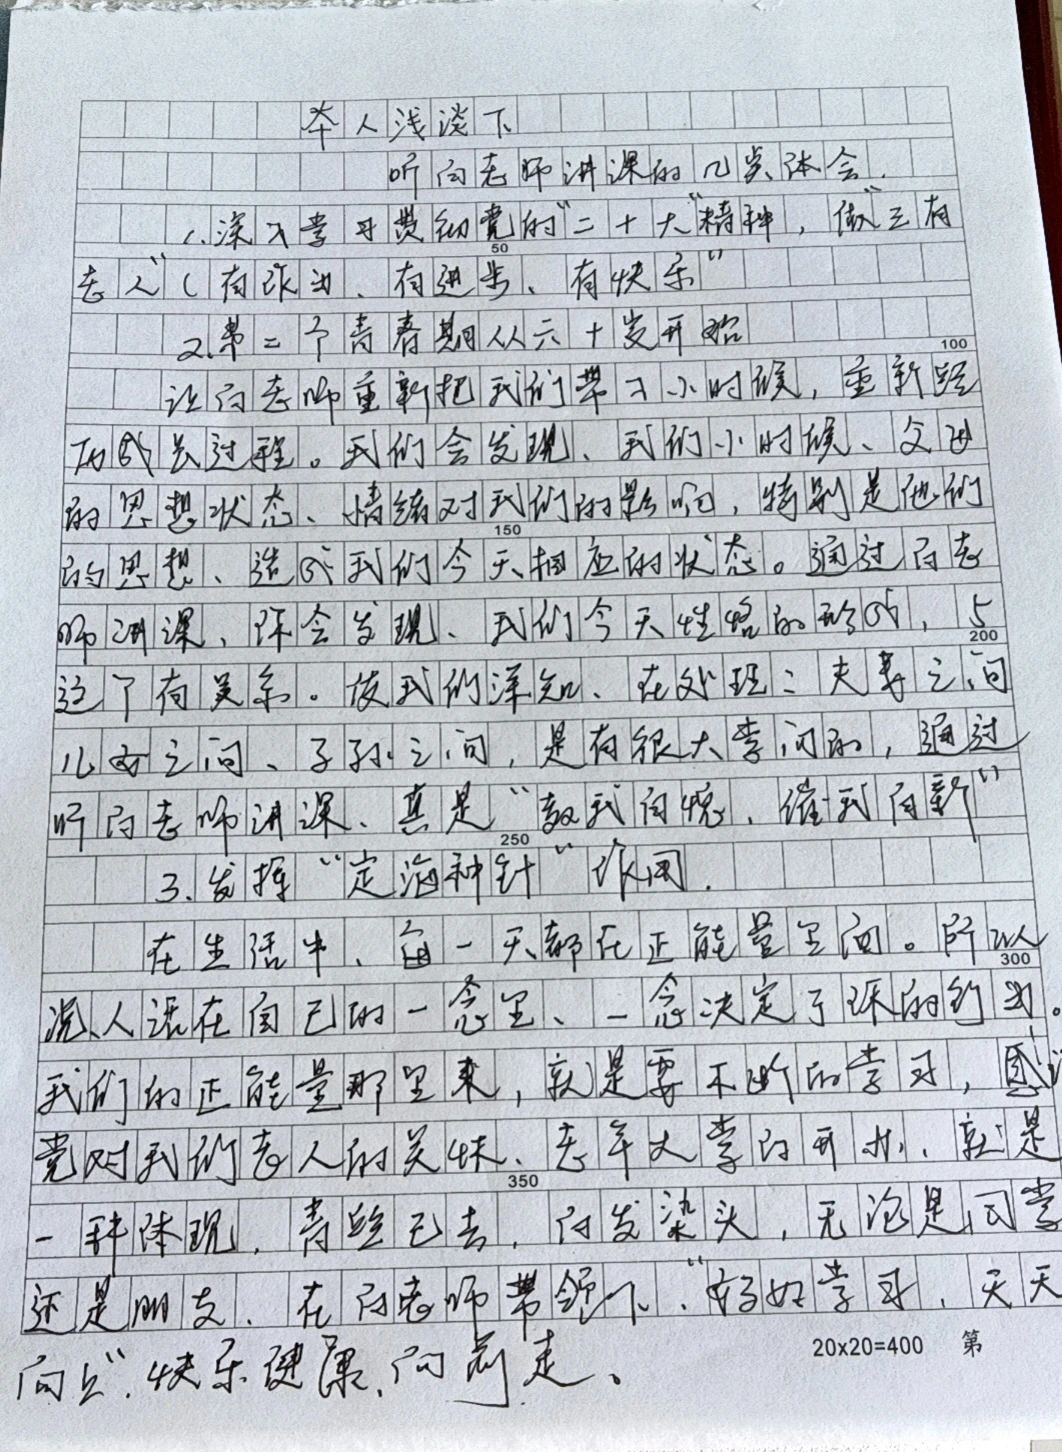 本人浅谈下
听向老师讲课的几点体会.
1.深入学习贯彻党的“二十大”精神，做“三有
老人”(有作为、有进步、有快乐”
50
2.第二个青春期从六十岁开始
100
让向老师重新把我们带入小时候，重新经
历成长过程。我们会发现、我们小时候、父母
的思想状态、情绪对我们的影响，特别是他们
150
的思想、造成我们今天相应的状态。通过向老
师讲课、你会发现、我们今天性格的形成，与
200
这个有关系。使我们深知、在处理：夫妻之间
儿女之间、子孙之间，是有很大学问的，通过
听向老师讲课、真是“教我自愧、催我自新”
250
3.发挥“定海神针”作用.
在生活中、每一天都在正能量里面。所以
300
说、人活在自己的一念里、一念决定了你的行为。
我们的正能量那里来，就是要不断的学习，感谢
党对我们老人的关怀、老年大学的开办、就是
350
一种体现，青丝已去，白发染头，无论是同学
还是朋友、在向老师带领下、“好好学习、天天
20x20=400 第
向上”、快乐健康、向前走、